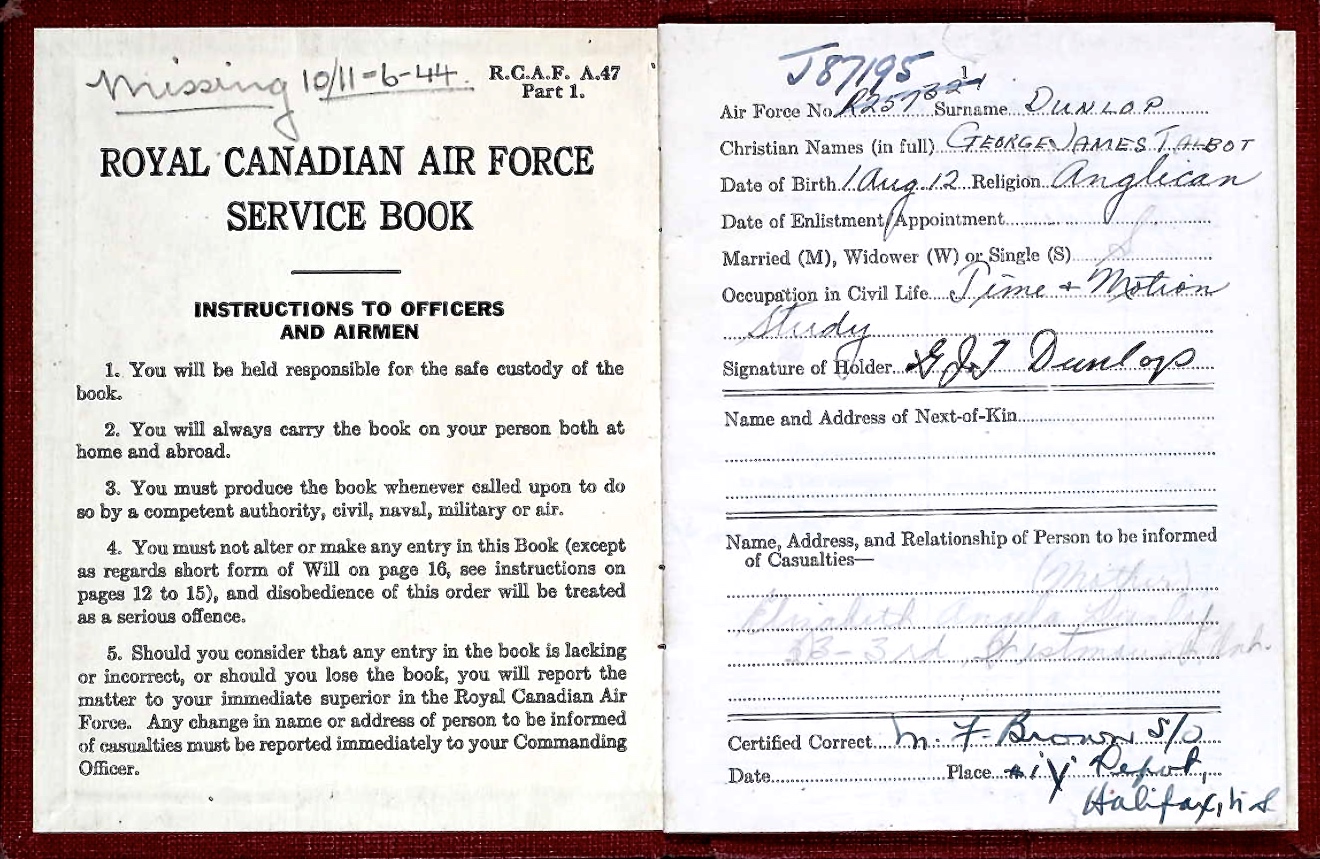 Missing 10/11-6-44.
R.C.A.F. A.47
Part 1.
ROYAL CANADIAN AIR FORCE
SERVICE BOOK
INSTRUCTIONS TO OFFICERS
AND AIRMEN
1. You will be held responsible for the safe custody of the
book.
2. You will always carry the book on your person both at
home and abroad.
3. You must produce the book whenever called upon to do
so by a competent authority, civil, naval, military or air.
4. You must not alter or make any entry in this Book (except
as regards short form of Will on page 16, see instructions on
pages 12 to 15), and disobedience of this order will be treated
as a serious offence.
5. Should you consider that any entry in the book is lacking
or incorrect, or should you lose the book, you will report the
matter to your immediate superior in the Royal Canadian Air
Force. Any change in name or address of person to be informed
of casualties must be reported immediately to your Commanding
Officer.
J87195
1
Air Force No. Surname DUNLOP
Christian Names (in full) GEORGE JAMES TALBOT
Date of Birth 1 Aug. 12 Religion Anglican
Date of Enlistment/Appointment
Married (M), Widower (W) or Single (S) S
Occupation in Civil Life Time + Motion
Study
Signature of Holder GJT Dunlop
Name and Address of Next-of-Kin
Name, Address, and Relationship of Person to be informed
of Casualties—
(Mother)
Elizabeth Angela Dunlop
33-3rd
Certified Correct M. F. Brown S/O
Date Place "Y" Depot,
Halifax, N S